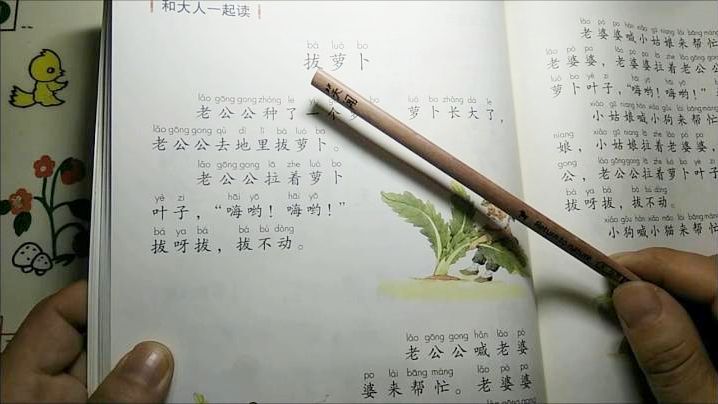 和大人一起读
bá luó bo
拔萝卜
lǎo gōng gong zhòng le luó bo zhǎng dà le
老公公种了一个萝 萝卜长大了，
lǎo gōng gong qù dì lǐ bá luó bo
老公公去地里拔萝卜。
lǎo gōng gong lā zhe luó bo
老公公拉着萝卜
yè zi hāi yō hāi yō
叶子，“嗨哟！嗨哟！”
bá ya bá bá bú dòng
拔呀拔，拔不动。
lǎo gōng gong hǎn lǎo pó
老公公喊老婆
po lái bāng máng lǎo pó po
婆来帮忙。老婆婆
lǎo pó po hǎn xiǎo gū niang lái bāng máng
老婆婆喊小姑娘来帮忙
老婆婆，老婆婆拉着老公公
luó bo yè zi hāi yō hāi yō
萝卜叶子，“嗨哟！嗨哟！”
xiǎo gū niang hǎn xiǎo gǒu lái bāng
小姑娘喊小狗来帮
niang xiǎo gū niang lā zhe lǎo pó po
娘，小姑娘拉着老婆婆，
gong lǎo gōng gong lā zhe luó bo yè zi
公，老公公拉着萝卜叶子
bá ya bá bá bú dòng
拔呀拔，拔不动。
xiǎo gǒu hǎn xiǎo māo lái bāng máng
小狗喊小猫来帮忙